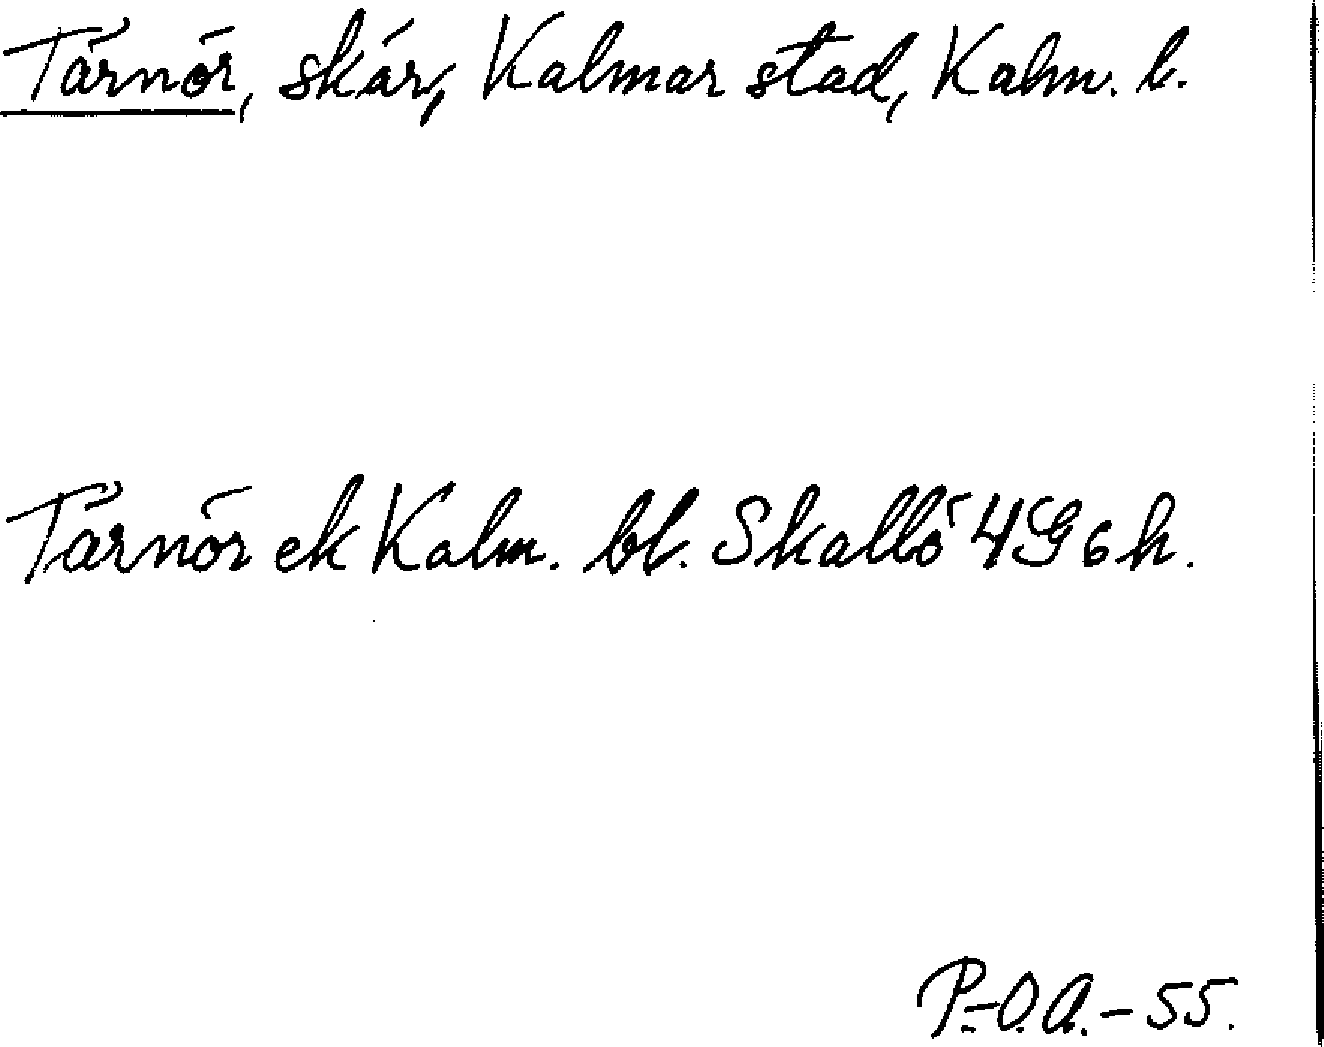 Tärnör, skär, Kalmar stad, Kalm. l.
Tärnör ek Kalm. bl. Skallö 4G6h.
P.-O.A.-55.